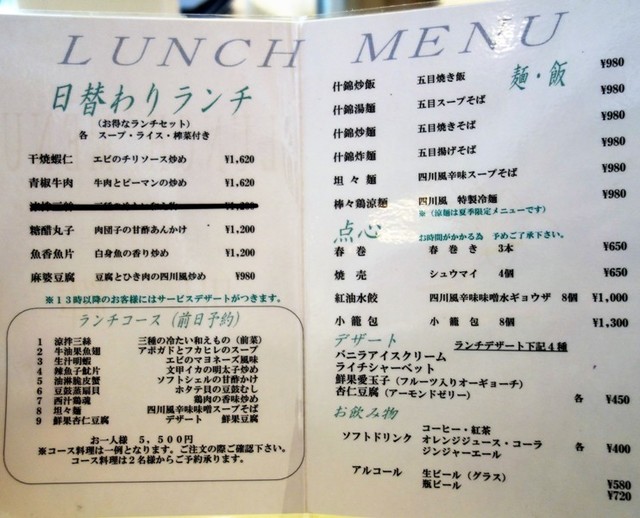 LUNCH MENU
日替わりランチ
(お得なランチセット)
各 スープ・ライス・搾菜付き
干焼蝦仁 エビのチリソース炒め ¥1,620
青椒牛肉 牛肉とピーマンの炒め ¥1,620
糖醋丸子 肉団子の甘酢あんかけ ¥1,200
魚香魚片 白身魚の香り炒め ¥1,200
麻婆豆腐 豆腐とひき肉の四川風炒め ¥980
※13時以降のお客様にはサービスデザートがつきます。
ランチコース(前日予約)
1 涼拌三絲 三種の冷たい和えもの(前菜)
2 牛油果魚翅 アボガドとフカヒレのスープ
3 生汁明蝦 エビのマヨネーズ風味
4 辣魚子魷片 文甲イカの明太子炒め
5 油淋脆皮蟹 ソフトシェルの甘酢かけ
6 豆鼓蒸扇貝 ホタテ貝の豆鼓むし
7 鶏肉の香味炒め
8 坦々麺 四川風辛味味噌スープそば
9 鮮果杏仁豆腐 デザート 鮮果豆腐
お一人様 5,500円
※コース料理は一例となります。ご注文の際ご確認下さい。
コース料理は2名様からご予約承ります。
麺・飯
什錦炒飯 五目焼き飯 ¥980
什錦湯麺 五目スープそば ¥980
什錦炒麺 五目焼きそば ¥980
什錦炸麺 五目揚げそば ¥980
坦々麺 四川風辛味スープそば ¥980
棒々鶏涼麺 四川風 特製冷麺 ¥980
※(涼麺は夏季限定メニューです)
点心 お時間がかかる為 予めご了承下さい。
春巻 春巻き 3本 ¥650
焼売 シュウマイ 4個 ¥650
紅油水餃 四川風辛味味噌水ギョウザ 8個 ¥1,000
小籠包 小籠包 8個 ¥1,300
デザート ランチデザート下記4種
バニラアイスクリーム
ライチシャーベット
鮮果愛玉子(フルーツ入りオーギョーチ)
杏仁豆腐(アーモンドゼリー) 各 ¥450
お飲み物
コーヒー・紅茶
ソフトドリンク オレンジジュース・コーラ 各 ¥400
ジンジャーエール
アルコール 生ビール(グラス) ¥580
瓶ビール ¥720